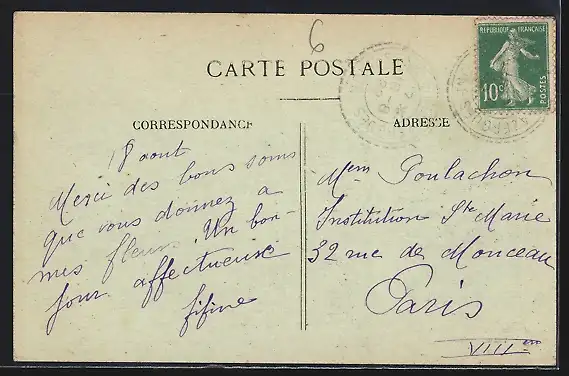 6
CARTE POSTALE
RÉPUBLIQUE FRANÇAISE
10c
POSTES
CORRESPONDANCE
ADRESSE
18 aout
Merci des bons soins
que vous donnez a
mes fleurs. Un bon-
jour affectueuse
fifine
Mem Poulachon
Institution Ste Marie
32 rue de Monceau
Paris
VIIIem